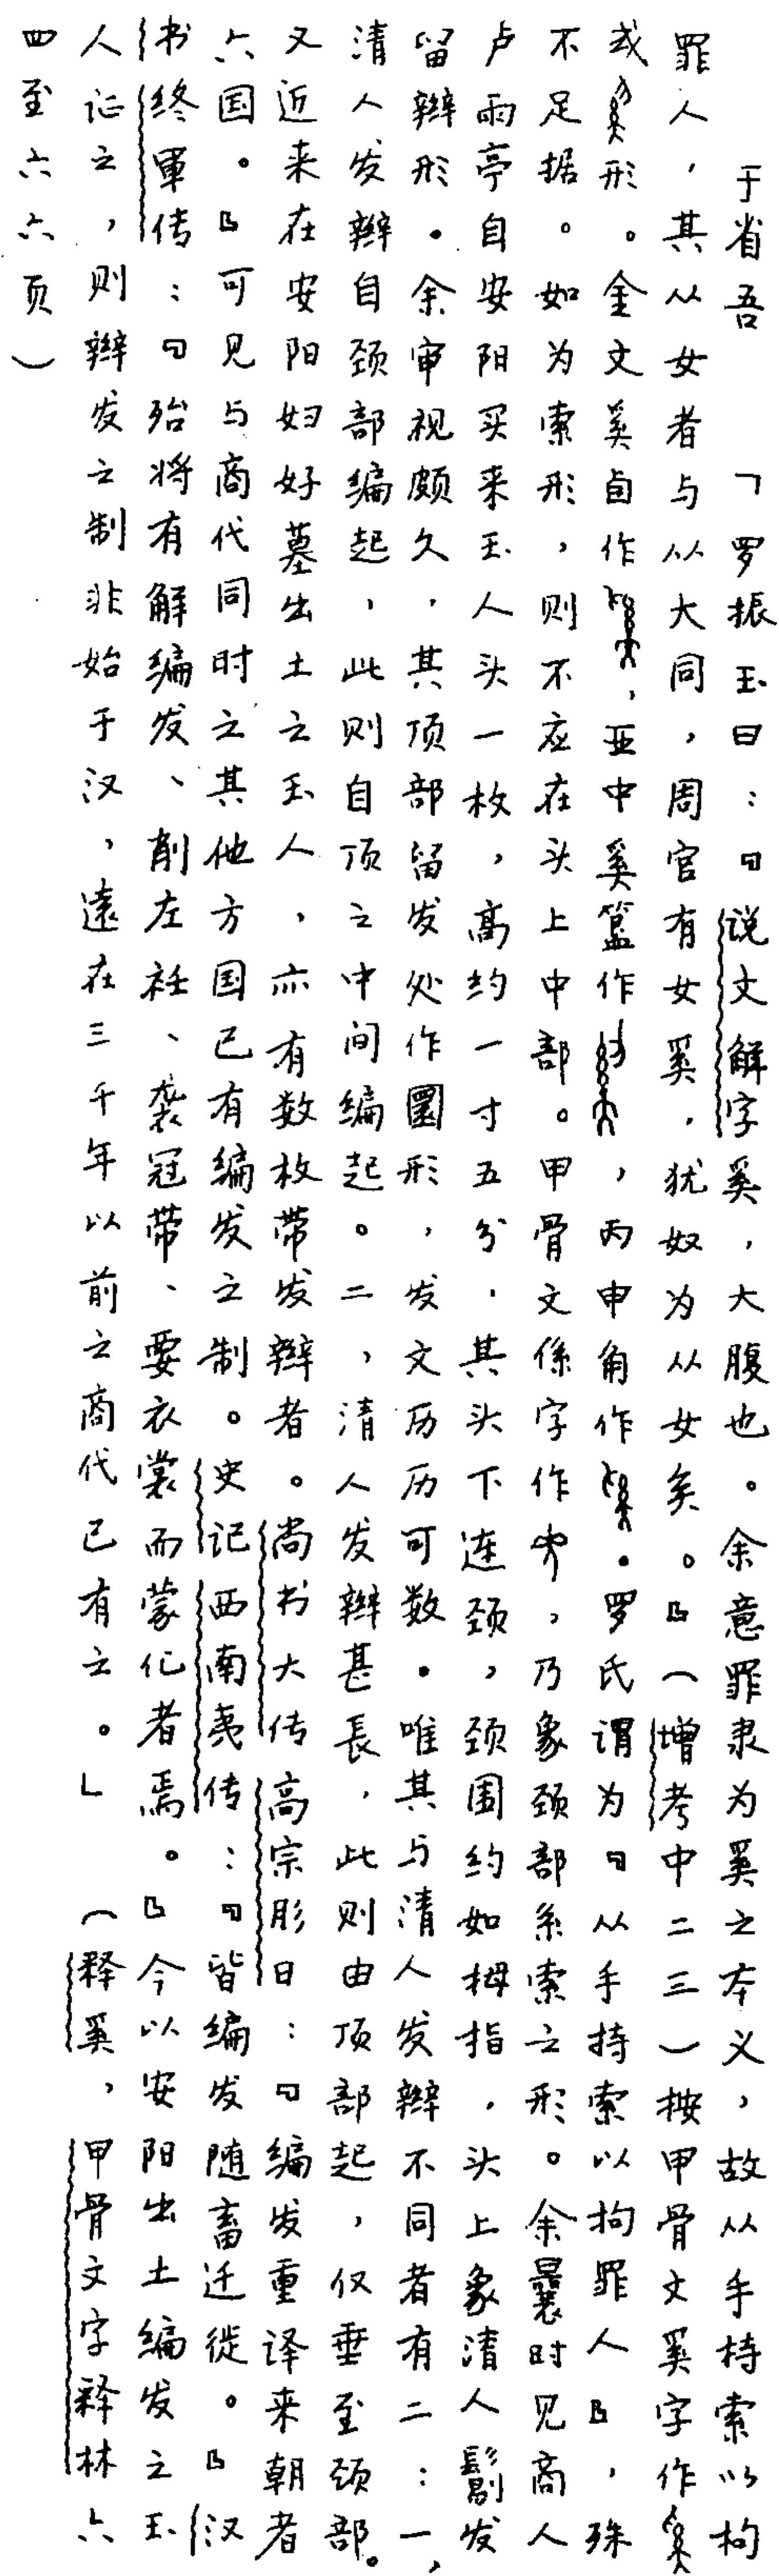 于省吾 「罗振玉曰：『说文解字奚，大腹也。余意罪隶为奚之本义，故从手持索以拘
罪人，其从女者与从大同，周官有女奚，犹奴为从女矣。』（增考中二三）按甲骨文奚字作
或形。金文奚卣作，亚中奚簋作，丙申角作。罗氏谓为『从手持索以拘罪人』，殊
不足据。如为索形，则不应在头上中部。甲骨文係字作，乃象颈部系索之形。余曩时见商人
卢雨亭自安阳买来玉人头一枚，高约一寸五分，其头下连颈，颈围约如拇指，头上象清人鬄发
留辫形。余审视颇久，其顶部留发处作圆形，发文历历可数。唯其与清人发辫不同者有二：一，
清人发辫自颈部编起，此则自顶之中间编起。二，清人发辫甚長，此则由顶部起，仅垂至颈部。
又近来在安阳妇好墓出土之玉人，亦有数枚带发辫者。尚书大传高宗肜日：『编发重译来朝者
六国。』可见与商代同时之其他方国已有编发之制。史记西南夷传：『皆编发随畜迁徙。』汉
书终軍传：『殆将有解编发、削左衽、袭冠带、要衣裳而蒙化者焉。』今以安阳出土编发之玉
人证之，则辫发之制非始于汉，遠在三千年以前之商代已有之。」 （释奚，甲骨文字释林六
四至六六页）